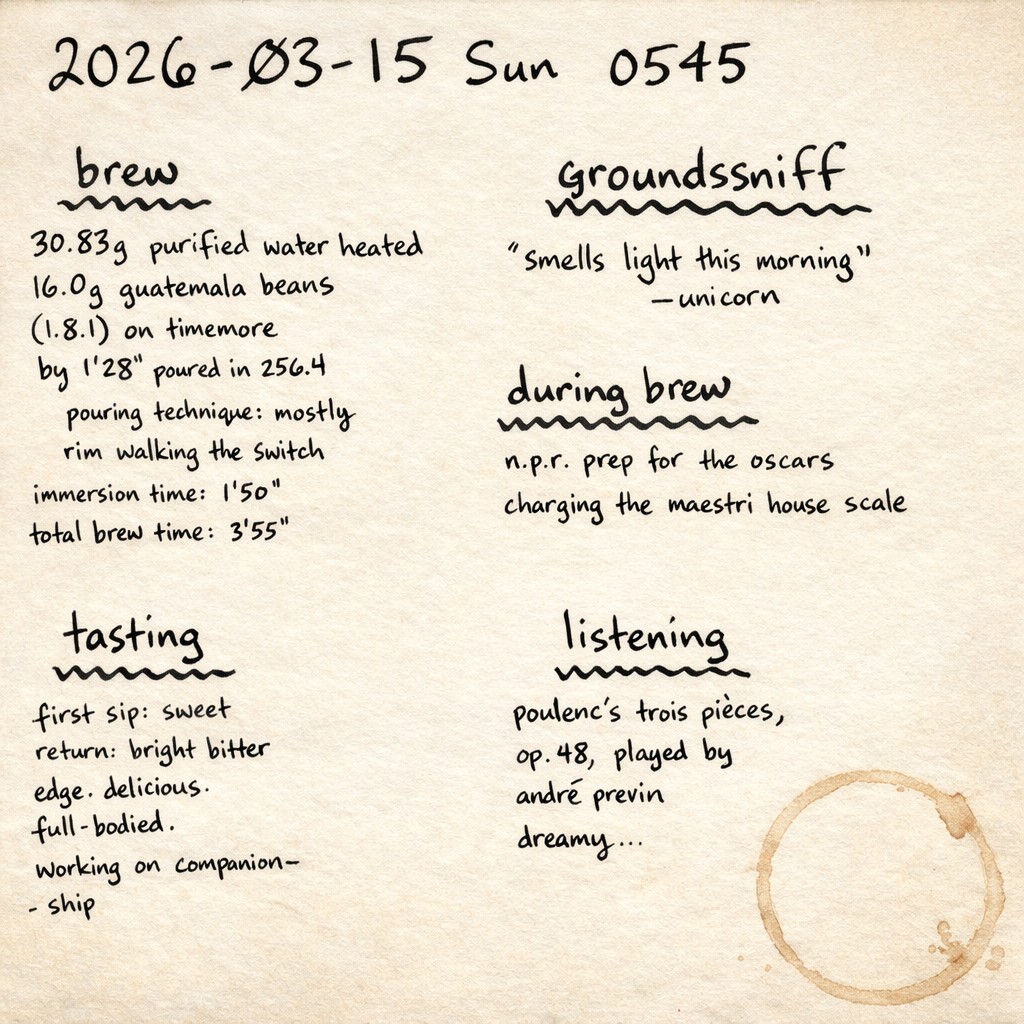 2026-03-15 Sun 0545
brew
30.83g purified water heated
16.0g guatemala beans
(1.8.1) on timemore
by 1'28" poured in 256.4
pouring technique: mostly
rim walking the switch
immersion time: 1'50"
total brew time: 3'55"
groundssniff
"smells light this morning"
—unicorn
during brew
n.p.r. prep for the oscars
charging the maestri house scale
tasting
first sip: sweet
return: bright bitter
edge. delicious.
full-bodied.
working on companion-
- ship
listening
poulenc's trois pièces,
op. 48, played by
andré previn
dreamy...